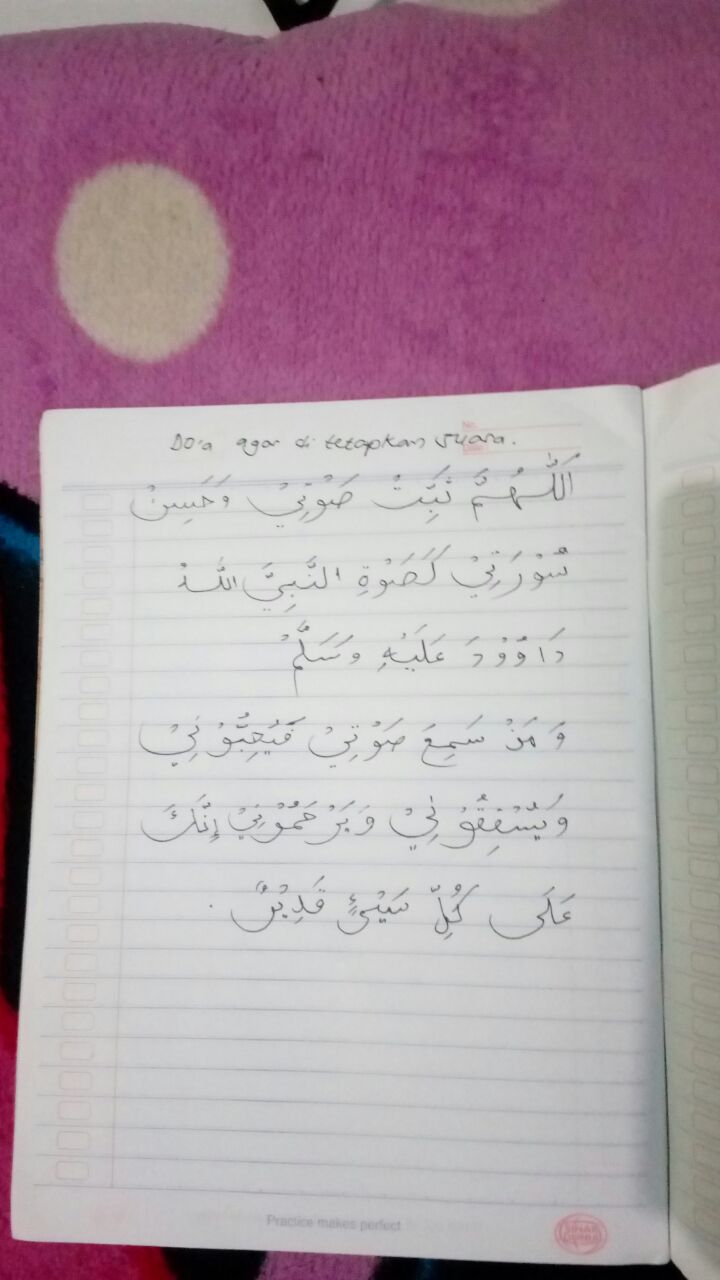 No.
Date
Do'a agar di tetapkan suara.
اَللّٰهُمَّ ثَبِّتْ صَوْتِيْ وَحَسِنْ
سُوْرَتِيْ كَصَوْةِ النَّبِيَّ اللهُ
دَاوُوْدَ عَلَيْهِ وَسَلَّمْ
وَ مَنْ سَمِعَ صَوْتِيْ فَيُحِبُّوْنِيْ
وَيُسْفِقُوْنِيْ وَيَرْحَمُوْنِيْ اِنَّكَ
عَلَى كُلِّ سَيْئٍ قَدِيْرٌ .
Practice makes perfect
SINAR DUNIA